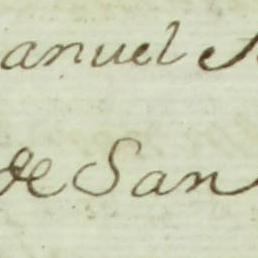 anuel
de San